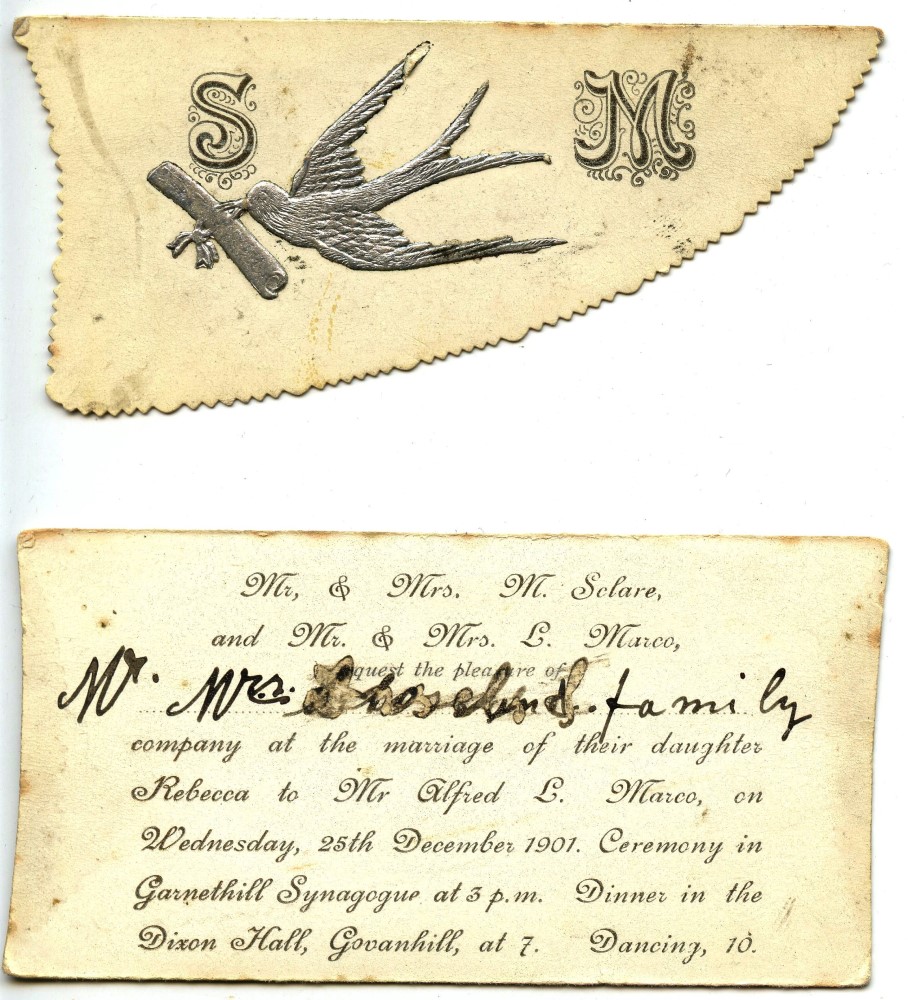 S M
Mr, & Mrs. M. Sclare,
and Mr. & Mrs. L. Marco,
request the pleasure of
Mr. Mrs. family
company at the marriage of their daughter
Rebecca to Mr Alfred L. Marco, on
Wednesday, 25th December 1901. Ceremony in
Garnethill Synagogue at 3 p.m. Dinner in the
Dixon Hall, Govanhill, at 7. Dancing, 10.